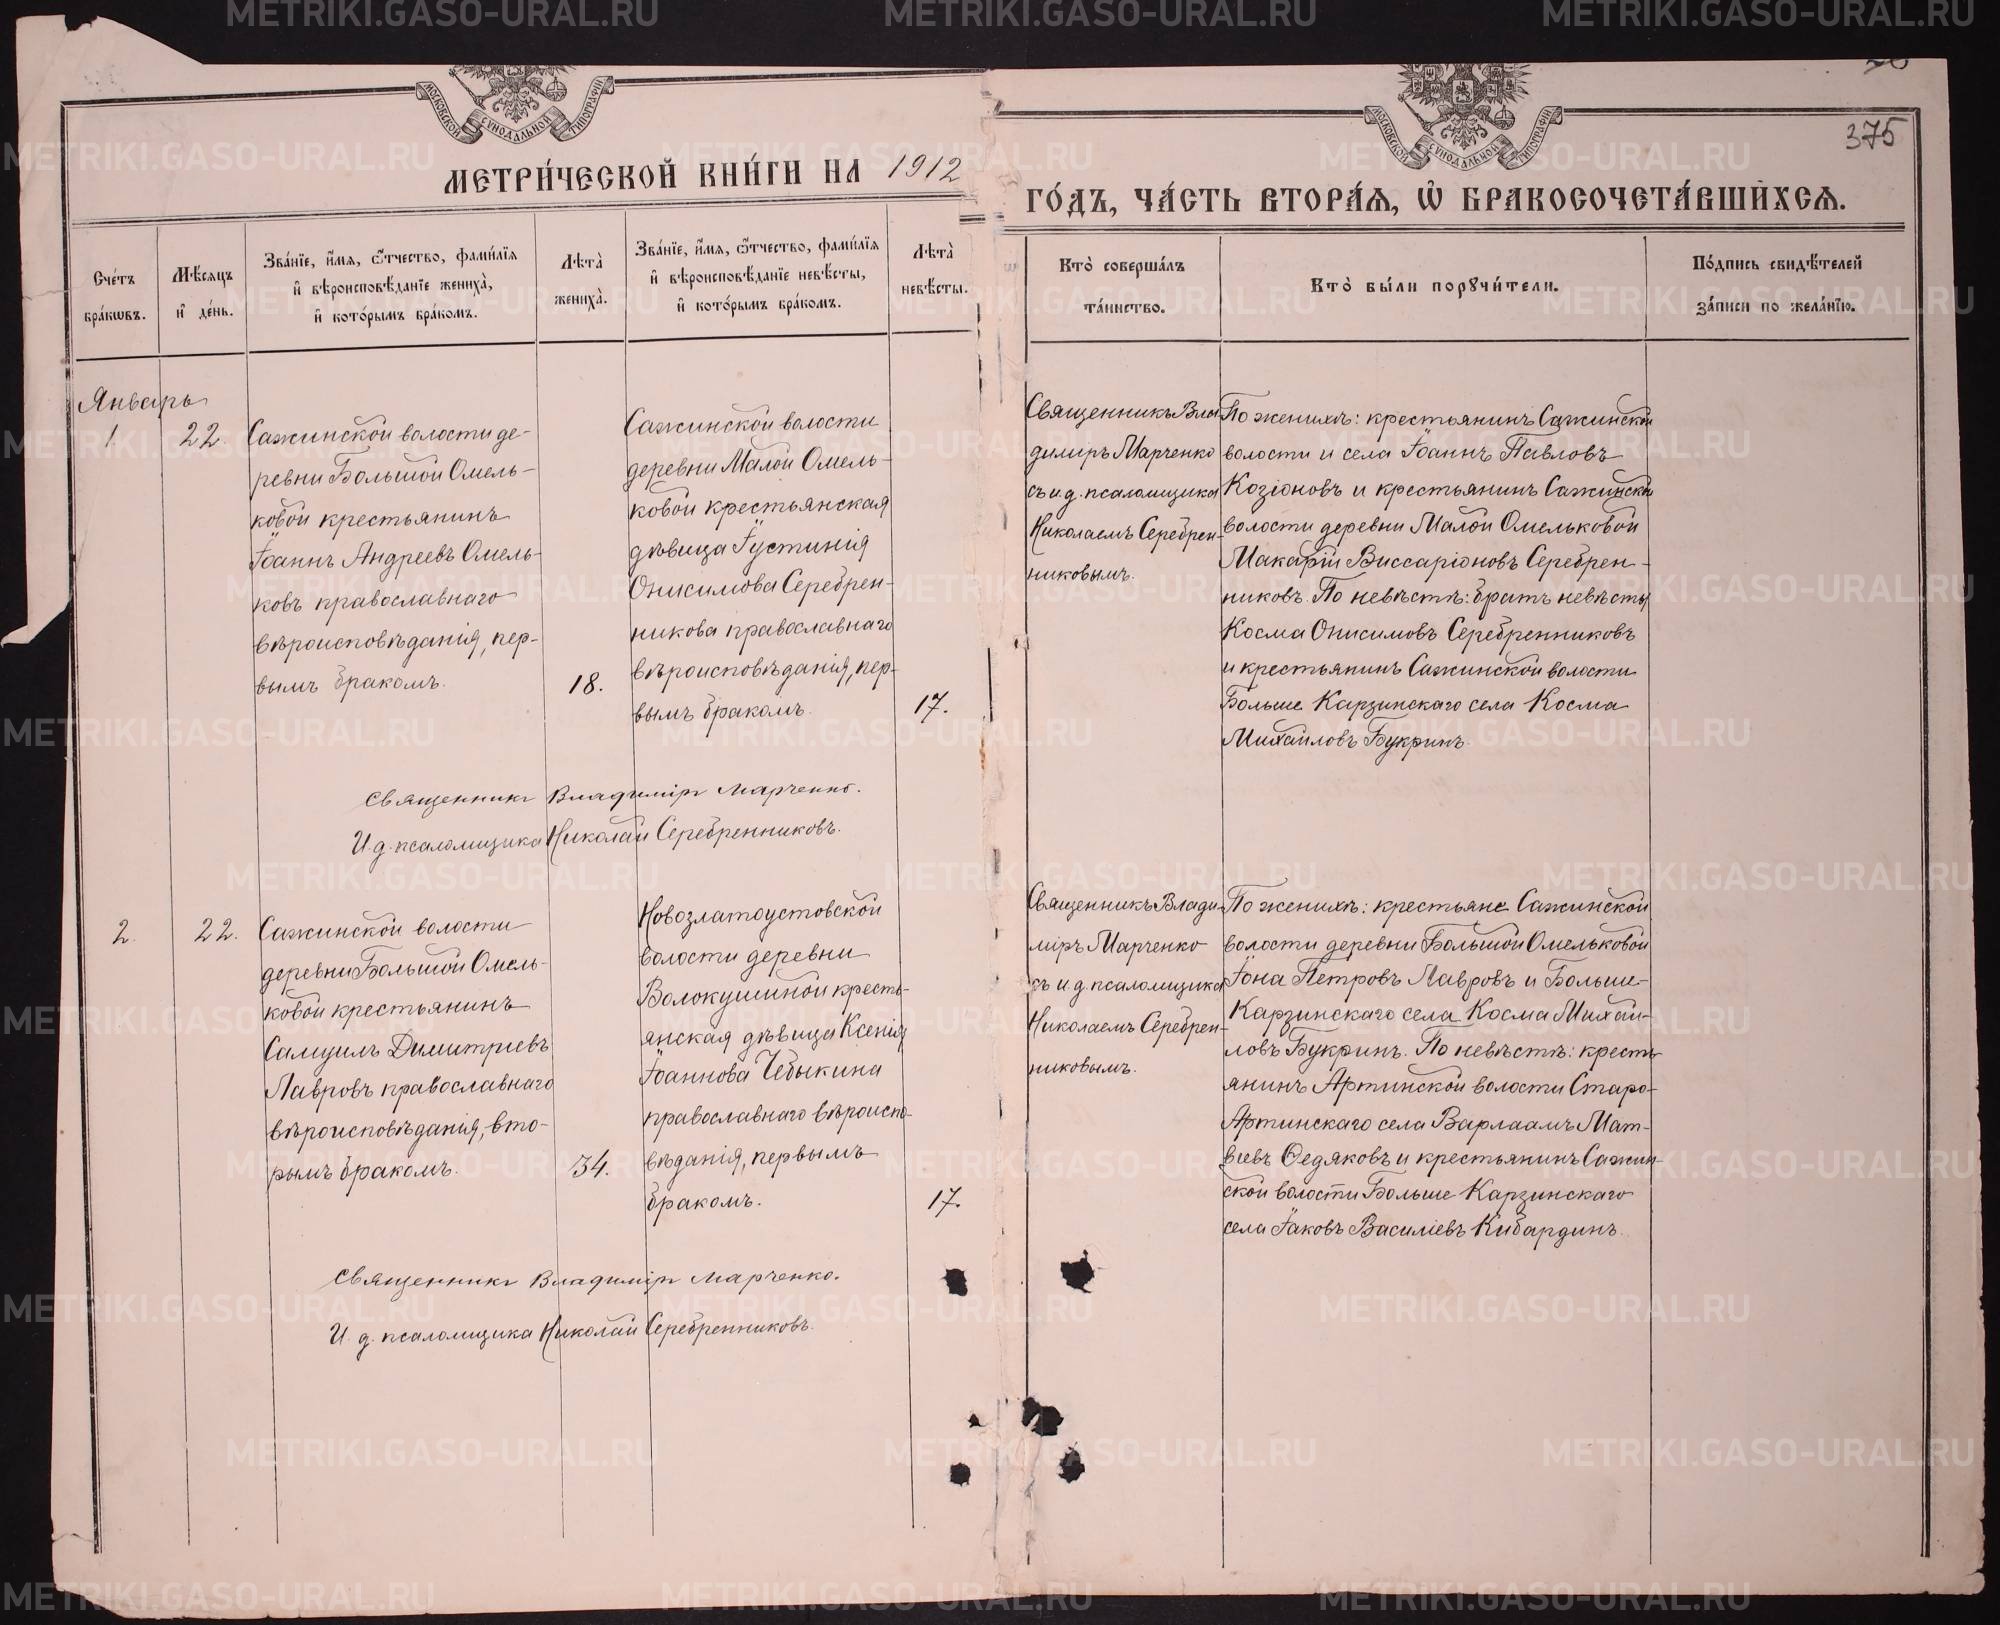 МЕТРИ́ЧЕСКОЙ КНИ́ГИ НА 1912
ГО́ДЪ, ЧА́СТЬ ВТОРА́Я, Ѿ БРАКОСОЧЕТА́ВШИХСЯ.
375
МОСКОВСКОЙ СѴНОДАЛЬНОЙ ТИПОГРАФІИ
МОСКОВСКОЙ СѴНОДАЛЬНОЙ ТИПОГРАФІИ
Сче́тъ
бра́кѡвъ.
Мѣ́сяцъ
и҆ де́нь.
Зва́нїе, и҆́мѧ, ѻ҆́тчество, фами́лїѧ
и҆ вѣроисповѣ́данїе жениха̀,
и҆ кото́рымъ бра́комъ.
Лѣта̀
жениха̀.
Зва́нїе, и҆́мѧ, ѻ҆́тчество, фами́лїѧ
и҆ вѣроисповѣ́данїе невѣ́сты,
и҆ кото́рымъ бра́комъ.
Лѣта̀
невѣ́сты.
Кто̀ соверша́лъ
та́инство.
Кто̀ бы́ли порꙋчи́тели.
По́дпись свидѣ́телей
за́писи по жела́нїю.
Январь
1
22.
Сажинской волости де-
ревни Большой Омель-
ковой крестьянинъ
Іоаннъ Андреевъ Омель-
ковъ православнаго
вѣроисповѣданія, пер-
вымъ бракомъ.
18.
Сажинской волости
деревни Малой Омель-
ковой крестьянская
дѣвица Іустинія
Онисимова Серебрен-
никова православнаго
вѣроисповѣданія, пер-
вымъ бракомъ.
17.
Священникъ Вла-
димиръ Марченко
съ и.д. псаломщика
Николаемъ Серебрен-
никовымъ.
По женихѣ: крестьянинъ Сажинской
волости и села Іоаннъ Павловъ
Козіоновъ и крестьянинъ Сажинской
волости деревни Малой Омельковой
Макарій Виссаріоновъ Серебрен-
никовъ. По невѣстѣ: братъ невѣсты
Косма Онисимовъ Серебренниковъ
и крестьянинъ Сажинской волости
Больше Карзинскаго села Косма
Михаиловъ Букринъ.
Священникъ Владиміръ Марченко.
И.д. псаломщика Николай Серебренниковъ.
2.
22.
Сажинской волости
деревни Большой Омель-
ковой крестьянинъ
Самуилъ Димитріевъ
Лавровъ православнаго
вѣроисповѣданія, вто-
рымъ бракомъ.
34.
Новозлатоустовской
волости деревни
Волокушиной кресть-
янская дѣвица Ксенія
Іоаннова Чебыкина
православнаго вѣроиспо-
вѣданія, первымъ
бракомъ.
17.
Священникъ Влади-
міръ Марченко
съ и.д. псаломщика
Николаемъ Серебрен-
никовымъ.
По женихѣ: крестьяне Сажинской
волости деревни Большой Омельковой
Іона Петровъ Лавровъ и Больше-
Карзинскаго села Косма Михаи-
ловъ Букринъ. По невѣстѣ: кресть-
янинъ Артинской волости Старо-
Артинскаго села Варлаамъ Мат-
вѣевъ Ѳедяковъ и крестьянинъ Сажин-
ской волости Больше Карзинскаго
села Іаковъ Василіевъ Кибардинъ.
Священникъ Владиміръ Марченко.
И. д. псаломщика Николай Серебренниковъ.
METRIKI.GASO-URAL.RU